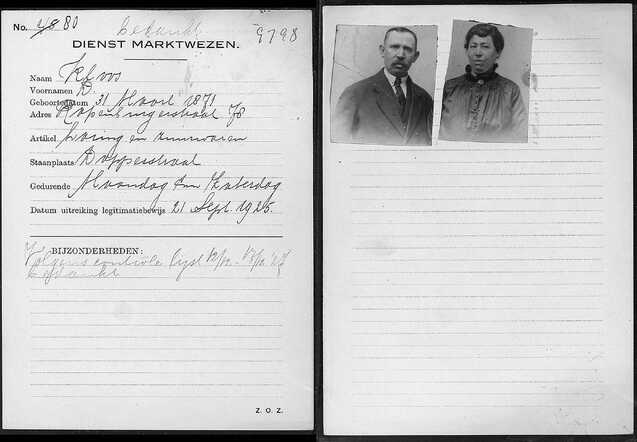 No. 80 bedankt 9798
DIENST MARKTWEZEN.
Naam Klvos
Voornamen D.
Geboortedatum 31 Maart 1871
Adres Rapenburgerstraat 78
Artikel Haring en zuurwaren
Staanplaats Dapperstraat
Gedurende Maandag t/m Zaterdag
Datum uitreiking legitimatiebewijs 21 Sept. 1925.
BIJZONDERHEDEN:
Volgens controle lijst 12/12 -
bedankt
Z. O. Z.